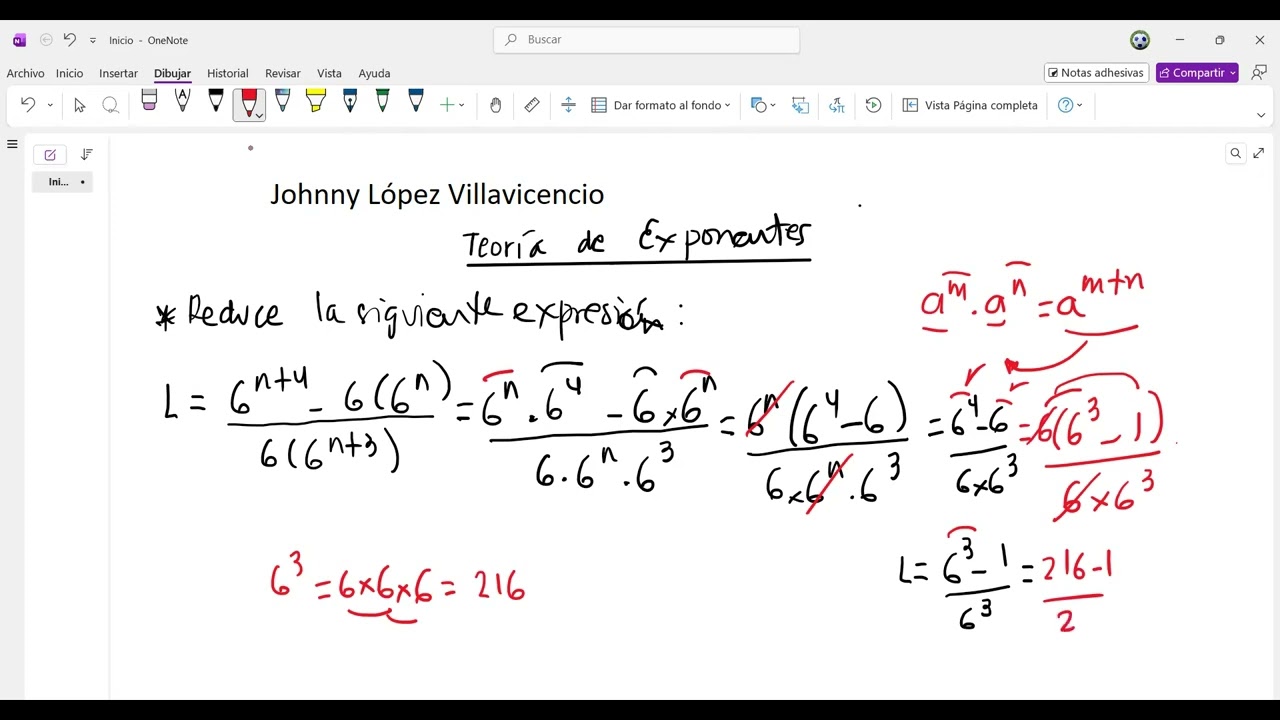 Inicio - OneNote
Buscar
Archivo Inicio Insertar Dibujar Historial Revisar Vista Ayuda
Notas adhesivas Compartir
Dar formato al fondo Vista Página completa
Ini...
Johnny López Villavicencio
Teoría de Exponentes
a^m . a^n = a^{m+n}
* Reduce la siguiente expresión :
L = \frac{6^{n+4} - 6(6^n)}{6(6^{n+3})} = \frac{6^n . 6^4 - 6 × 6^n}{6 . 6^n . 6^3} = \frac{6^n (6^4 - 6)}{6 × 6^n . 6^3} = \frac{6^4 - 6}{6 × 6^3} = \frac{6(6^3 - 1)}{6 × 6^3}
L = \frac{6^3 - 1}{6^3} = \frac{216 - 1}{2}
6^3 = 6×6×6 = 216